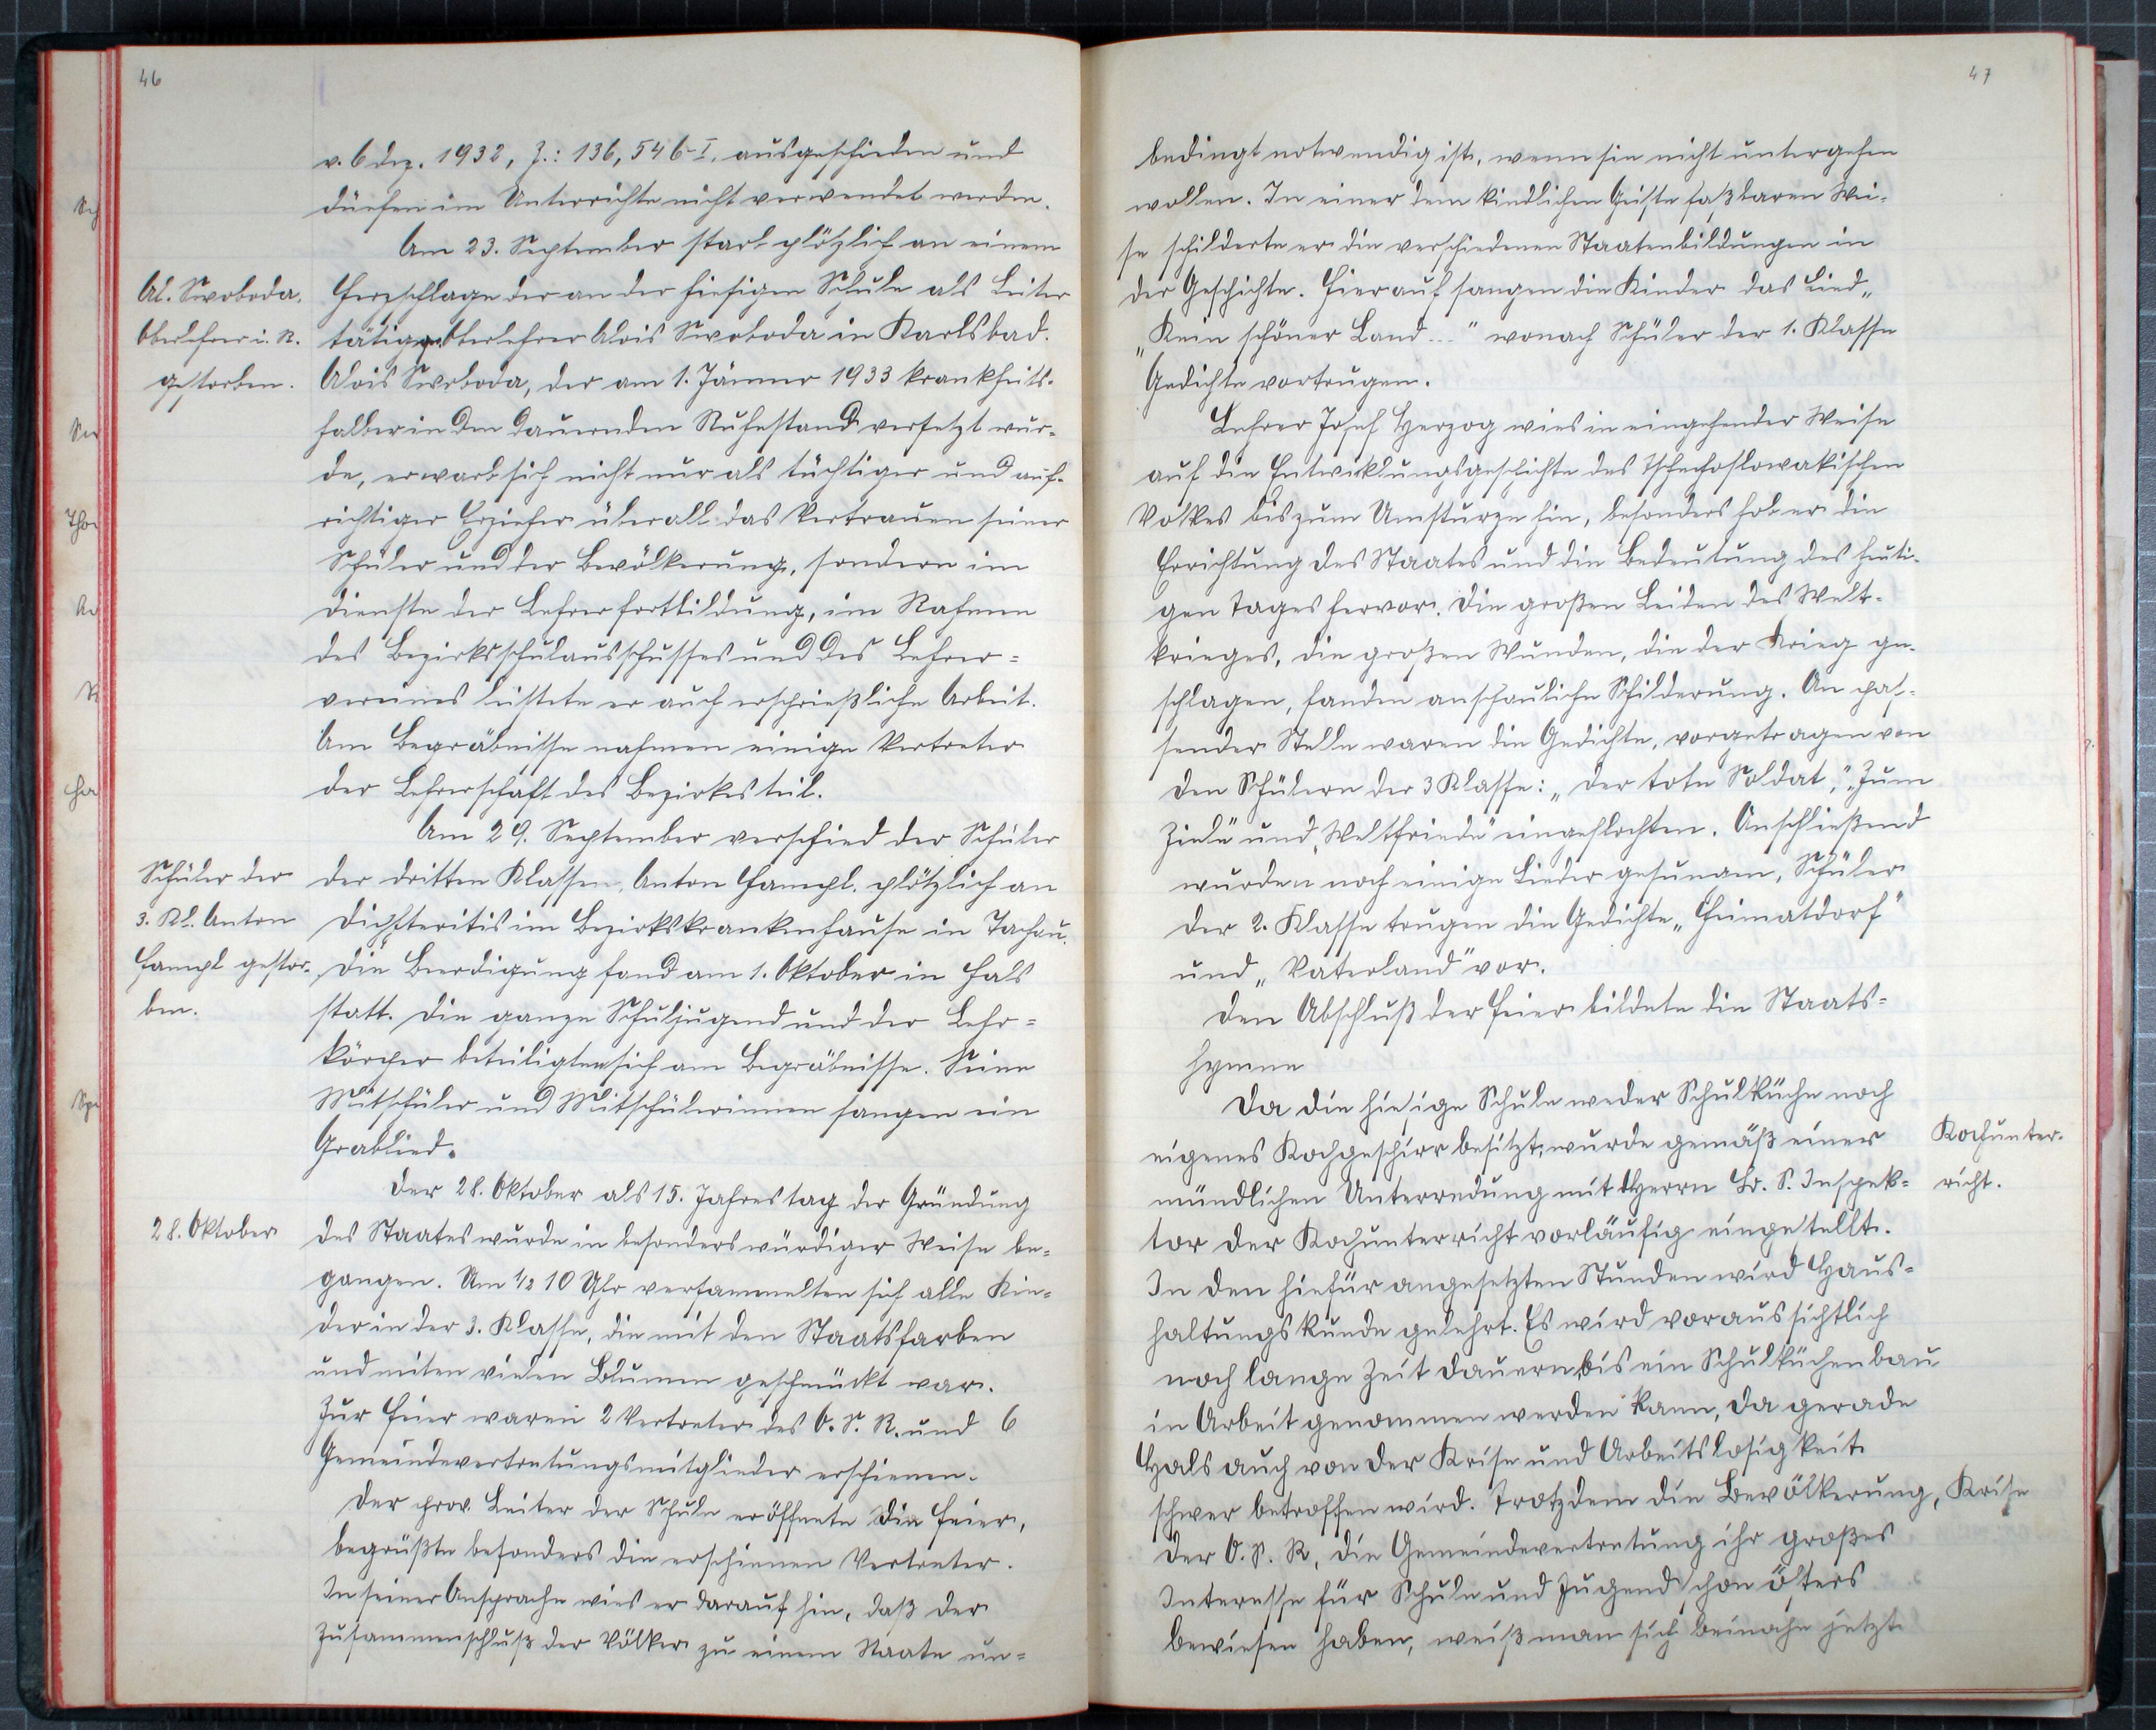 46
v. 6 dez. 1932, Z.: 136,546-I. ausgeschieden und
dürfen im Unterrichte nicht verwendet werden.
Am 23. September starb plötzlich an einem
Al. Swoboda, Herzschlage der an der hiesigen Schule als Leiter
Oberlehrer i. R. tätige Oberlehrer Alois Swoboda in Karlsbad.
gestorben. Alois Swoboda, der am 1. Jänner 1933 krankheits-
halber in den dauernden Ruhestand versetzt wur-
de, erwarb sich nicht nur als tüchtiger und auf-
richtiger Erzieher überall das Vertrauen seiner
Schüler und der Bevölkerung, sondern im
Dienste der Lehrerfortbildung, im Rahmen
des Bezirksschulausschusses und des Lehrer-
vereines leistete er auch ersprießliche Arbeit.
Am Begräbnisse nahmen einige Vertreter
der Lehrerschaft des Bezirkes teil.
Am 29. September verschied der Schüler
Schüler der der dritten Klassen, Anton Hampl, plötzlich an
3. Kl. Anton Diphteritis im Bezirkskrankenhause in Tachau.
Hampl gestor- Die Beerdigung fand am 1. Oktober in Hals
ben. statt. Die ganze Schuljugend und der Lehr-
körper beteiligten sich am Begräbnisse. Seine
Mitschüler und Mitschülerinnen sangen ein
Grablied.
Der 28. Oktober als 15. Jahrestag der Gründung
28. Oktober des Staates wurde in besonders würdiger Weise be-
gangen. Um 1/2 10 Uhr versammelten sich alle Kin-
der in der 3. Klasse, die mit den Staatsfarben
und mit vielen Blumen geschmückt war.
Zur Feier waren 2 Vertreter des O. S. R. und 6
Gemeindevertretungsmitglieder erschienen.
Der prov. Leiter der Schule eröffnete die Feier,
begrüßte besonders die erschienen Vertreter.
In seiner Ansprache wies er darauf hin, daß der
Zusammenschluß der Völker zu einem Staate un-
47
bedingt notwendig ist, wenn sie nicht untergehen
wollen. In einer dem kindlichen Geiste faßbaren Wei-
se schilderte er die verschiedenen Staatenbildungen in
der Geschichte. Hierauf sangen die Kinder das Lied „
„Kein schöner Land..." wonach Schüler der 1. Klasse
Gedichte vortrugen.
Lehrer Josef Herzog wies in eingehender Weise
auf die Entwicklungsgeschichte des Tschechoslowakischen
Volkes bis zum Umsturze hin, besonders hob er die
Errichtung des Staates und die Bedeutung des heuti-
gen Tages hervor. Die großen Leiden des Welt-
krieges, die großen Wunden, die der Krieg ge-
schlagen, fanden anschauliche Schilderung. An pas-
sender Stelle waren die Gedichte, vorgetragen von
den Schülern der 3 Klasse: „Der tote Soldat," „Zum
Ziele" und „Weltfriede" eingeflochten. Anschließend
wurden noch einige Lieder gesungen, Schüler
der 2. Klasse trugen die Gedichte „Heimatdorf"
und „Vaterland" vor.
Den Abschluß der Feier bildete die Staats-
hymne
Da die hiesige Schule weder Schulküche noch
eigenes Kochgeschirr besitzt, wurde gemäß einer Kochunter-
mündlichen Unterredung mit Herrn Bz. S. Inspek- richt.
tor der Kochunterricht vorläufig eingestellt.
In den hiefür angesetzten Stunden wird Haus-
haltungskunde gelehrt. Es wird voraussichtlich
noch lange Zeit dauern, bis ein Schulküchenbau
in Arbeit genommen werden kann, da gerade
Hals auch von der Krise und Arbeitslosigkeit
schwer betroffen wird. Trotzdem die Bevölkerung, Krise
der O. S. R., die Gemeindevertretung ihr großes
Interesse für Schule und Jugend schon öfters
bewiesen haben, weiß man sich beinahe jetzt